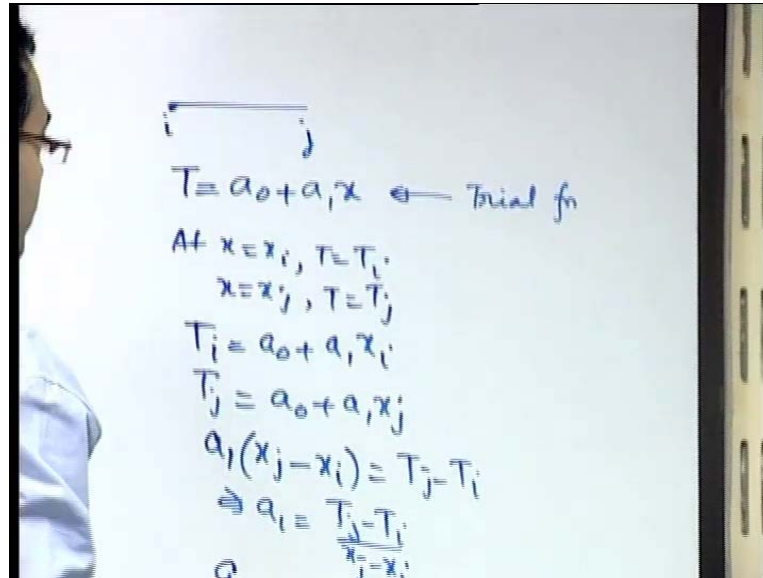 i j
T = a₀ + a₁x ← Trial fn
At x = xᵢ, T = Tᵢ
x = xⱼ, T = Tⱼ
Tᵢ = a₀ + a₁xᵢ
Tⱼ = a₀ + a₁xⱼ
a₁(xⱼ - xᵢ) = Tⱼ - Tᵢ
⇒ a₁ = (Tⱼ - Tᵢ)/(xⱼ - xᵢ)
a